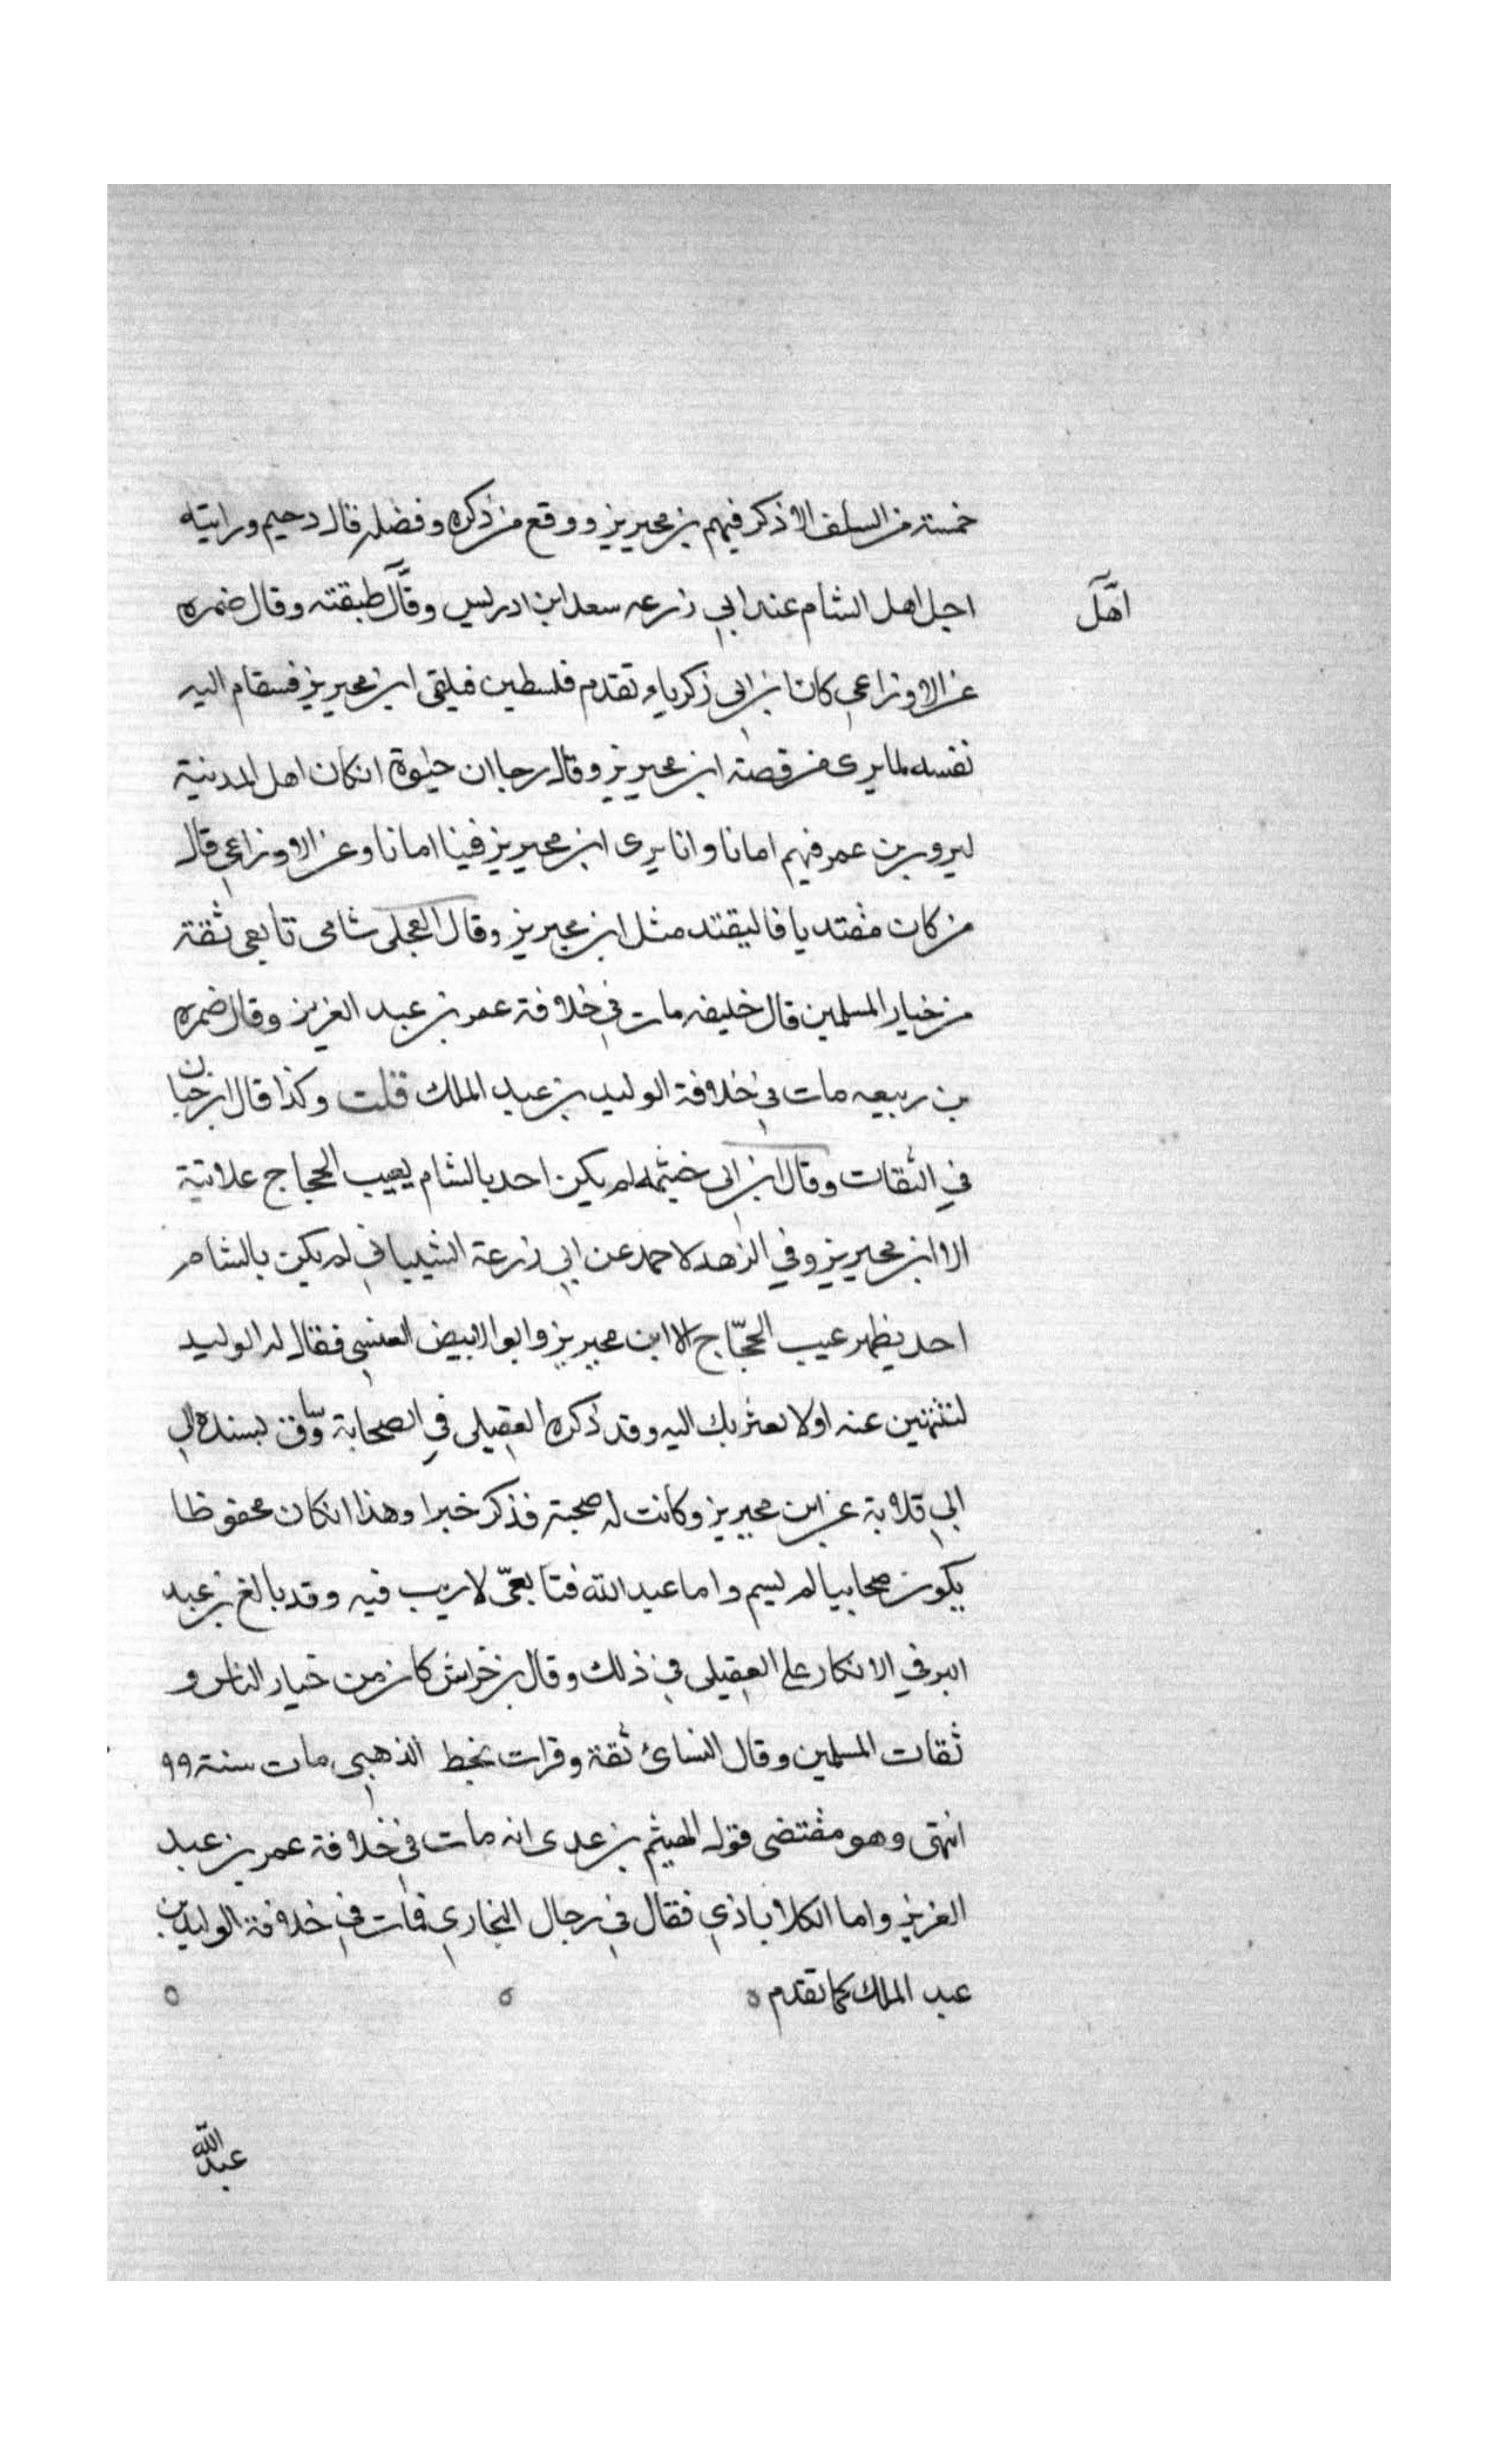 خمسة من السلف الا ذكر فيهم بن محيريز ووقع من ذكره وفضله قال دحيم ورايته
اجل اهل الشام عند ابي زرعه سعد ابن ادريس وقال طبقته وقال ضمره
اهل
عن الاوزاعي كان ابن ابي زكريا يقدم فلسطين فيلقى ابن محيريز فسقام اليه
نفسه لما يرى من قصة ابن محيريز وقال رجا ان حيوة ان كان اهل المدينة
ليرو بن عمر فيهم امانا وانا يرى ابن محيريز فينا امانا وعن الاوزاعي قال
من كان مقتديا فاليقتد مثل ابن محيريز وقال العجلى شامى تابعى ثقة
من خيار المسلمين قال خليفه مات في خلافة عمر بن عبد العزيز وقال ضمره
بن ربيعه مات في خلافة الوليد بن عبد الملك قلت وكذا قال ابن حبان
في الثقات وقال ابن ابى خيثمه لم يكن احد بالشام يعيب الحجاج علانية
الا ابن محيريز وفي الزهد لاحمد عن ابي زرعة الشيباني لم يكن بالشام
احد يظهر عيب الحجّاج الا ابن محيريز وابو الابيض العنسي فقال له الوليد
لتنتهين عنه اولا بعثن بك اليه وقد ذكره العقيلى في الصحابة وساق بسنده الي
ابي قلابة عن ابن محيريز وكانت له صحبة فذكر خبرا وهذا ان كان محفوظا
يكون صحابيا لم يسم واما عبد الله فتابعىّ لا ريب فيه وقد بالغ بن عبد
البر في الانكار على العقيلى في ذلك وقال بن خراش كان من خيار الناس و
ثقات المسلمين وقال النسائ ثقة وقرات بخط الذهبي مات سنة ٩٩
انتهى وهو مقتضى قول الهيثم بن عدى انه مات في خلافة عمر بن عبد
العزيز واما الكلاباذي فقال في رجال البخاري مات في خلافة الوليد بن
عبد الملك كما تقدم ه ه ه
عبد الله